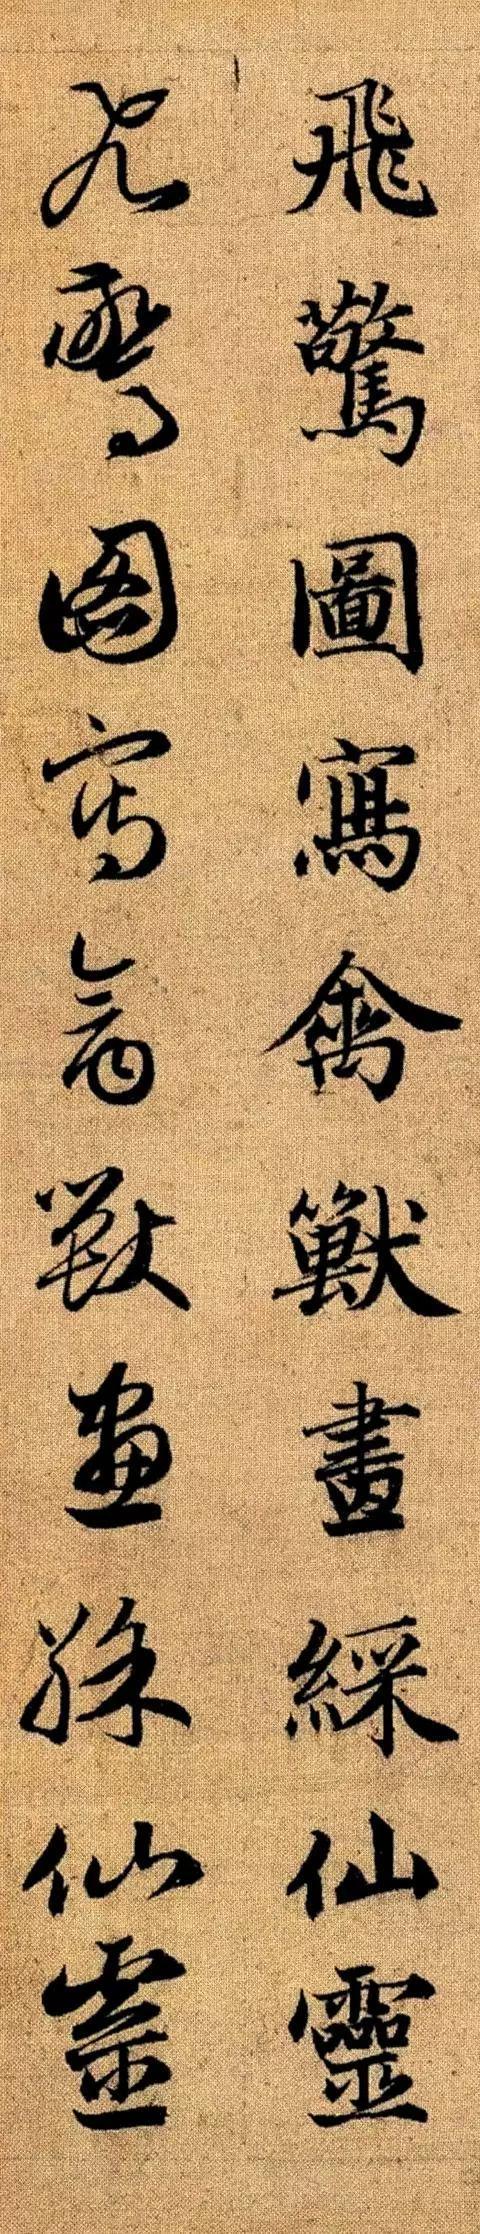 飛驚圖寫禽獸畫綵仙靈
飛驚圖寫禽獸畫綵仙靈